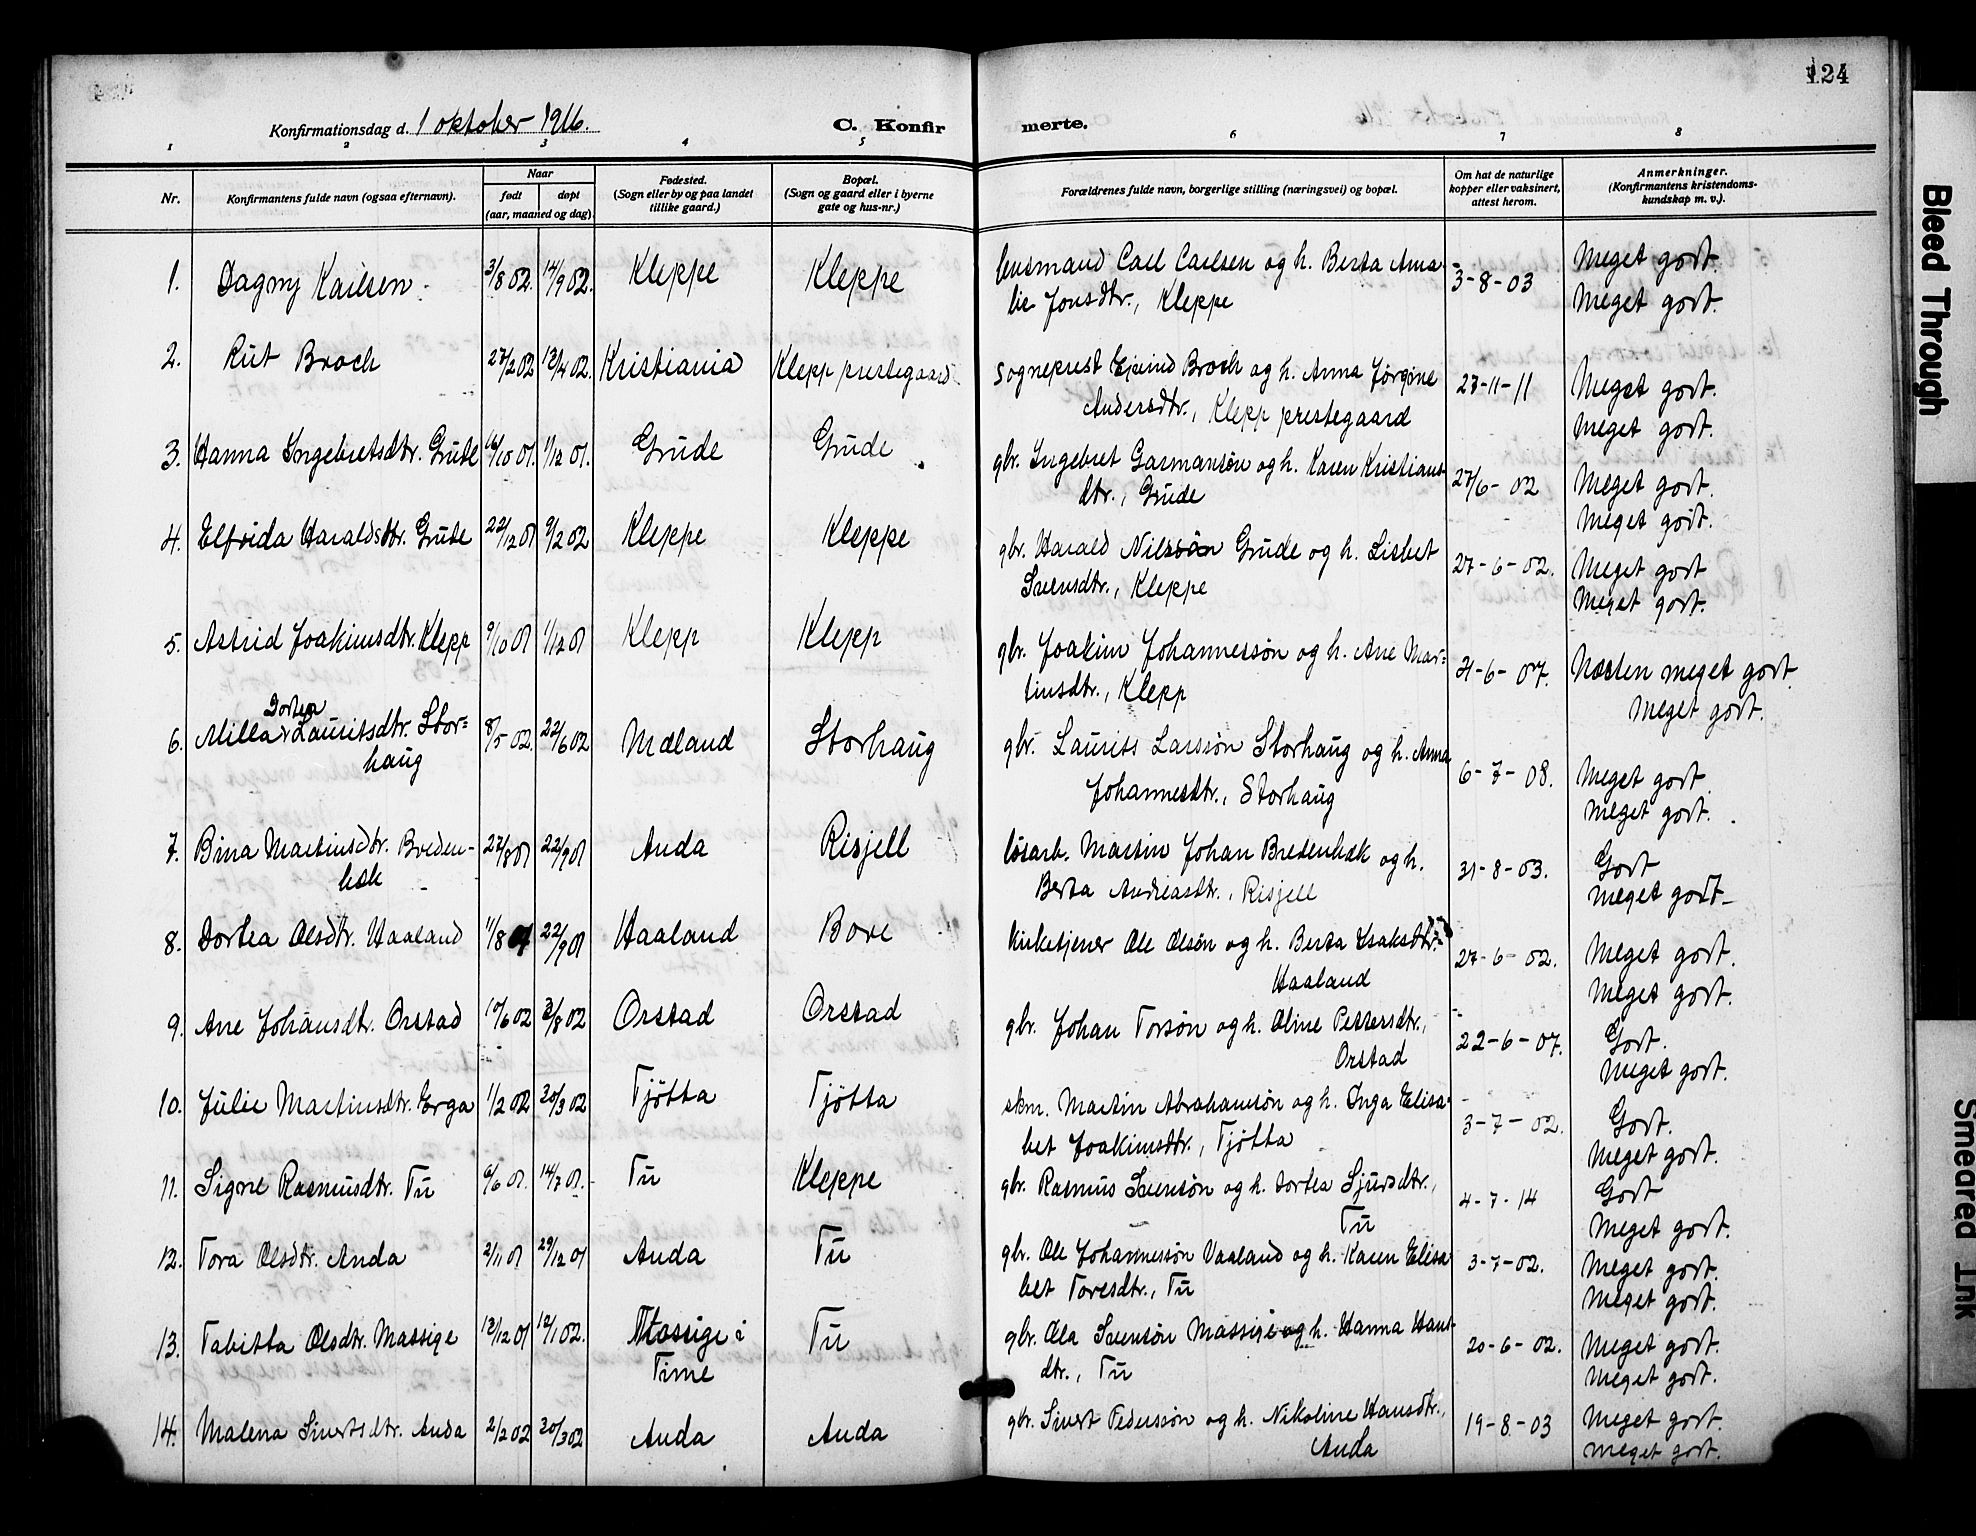 124
Konfirmationsdag d. 1 oktober 1916.
C. Konfir merte.
1 2 3 4 5 6 7 8
Nr.
Konfirmantens fulde navn (ogsaa efternavn).
Naar
født døpt
(aar, maaned og dag)
Fødested.
(Sogn eller by og paa landet
tillike gaard.)
Bopæl.
(Sogn og gaard eller i byerne
gate og hus-nr.)
Forældrenes fulde navn, borgerlige stilling (næringsvei) og bopæl.
Om hat de naturlige
kopper eller vaksinert,
attest herom.
Anmerkninger.
(Konfirmantens kristendoms-
kundskap m. v.).
1. Dagny Karlsen 3/8 02. 14/9 02. Kleppe Kleppe lensmand Carl Carlsen og h. Berta Ama- 3-8-03 Meget godt.
lie Jonsdtr., Kleppe Meget godt.
2. Rut Broch 27/2 02 13/4 02 Kristiania Klepp prestegaard sogneprest Eivind Broch og h. Anna Jørgine 27-11-11 Meget godt.
Andersdtr., Klepp prestegaard Meget godt.
3. Hanna Ingebretsdtr. Grude 16/10 01. 1/12 01. Grude Grude gbr. Ingebret Garmansøn og h. Karen Kristians- 27/6-02 Meget godt.
dtr., Grude Meget godt.
4. Elfrida Haraldsdtr. Grude 22/12 01 9/2 02 Kleppe Kleppe gbr. Harald Nilssøn Grude og h. Lisbet 27-6-02. Meget godt
Svensdtr., Kleppe Meget godt.
5. Astrid Joakimsdtr. Klepp 9/10 01 1/12 01 Klepp Klepp gbr. Joakim Johannessøn og h. Ane Mar- 21-6-07. Næsten meget godt.
tinsdtr., Klepp Meget godt.
Dortea
6. Milla Lauritsdtr. Stor- 8/5 02. 22/6 02 Mæland Storhaug gbr. Laurits Larssøn Storhaug og h. Anna 6-7-08. Meget godt.
haug Johannesdtr., Storhaug Meget godt.
7. Bina Martinsdtr. Breden- 27/8 01 22/9 01 Anda Risjell løsarb. Martin Johan Bredenbæk og h. 31-8-03. Godt
bæk Berta Andreasdtr., Risjell Meget godt
8. Dortea Olsdtr. Haaland 11/8 01 22/9 01 Haaland Bore kirketjener Ole Olsøn og h. Berta Isaksdtr. 27-6-02. Meget godt.
Haaland Meget godt.
9. Ane Johansdtr. Orstad 10/6 02 3/8 02 Orstad Orstad gbr. Johan Torsøn og h. Oline Pettersdtr., 22-6-07. Godt.
Orstad Meget godt.
10. Julie Martinsdtr. Erga 1/2 02 30/3 02 Tjøtta Tjøtta skm. Martin Abrahamsøn og h. Inga Elisa- 3-7-02. Godt.
bet Joakimsdtr., Tjøtta Meget godt.
11. Signe Rasmusdtr. Tu 6/6 01. 14/7 01. Tu Kleppe gbr. Rasmus Svensøn og h. Dortea Sjursdtr., 4-7-14 Godt
Tu Meget godt.
12. Tora Olsdtr. Anda 2/11 01 29/12 01 Anda Tu gbr. Ole Johannessøn Vaaland og h. Karen Elisa 3-7-02. Meget godt.
bet Toresdtr., Tu Meget godt.
13. Tabitta Olsdtr. Massige 12/12 01 12/1 02. Massige i Tu gbr. Ola Svensøn Massige og h. Hanna Hans- 20-6-02. Meget godt.
Time dtr., Tu Meget godt.
14. Malena Sivertsdtr. Anda 2/2 02 30/3 02 Anda Anda gbr. Sivert Pederssøn og h. Nikoline Hansdtr., 19-8-03 Meget godt.
Anda Meget godt.
Bleed Through
Smeared Ink